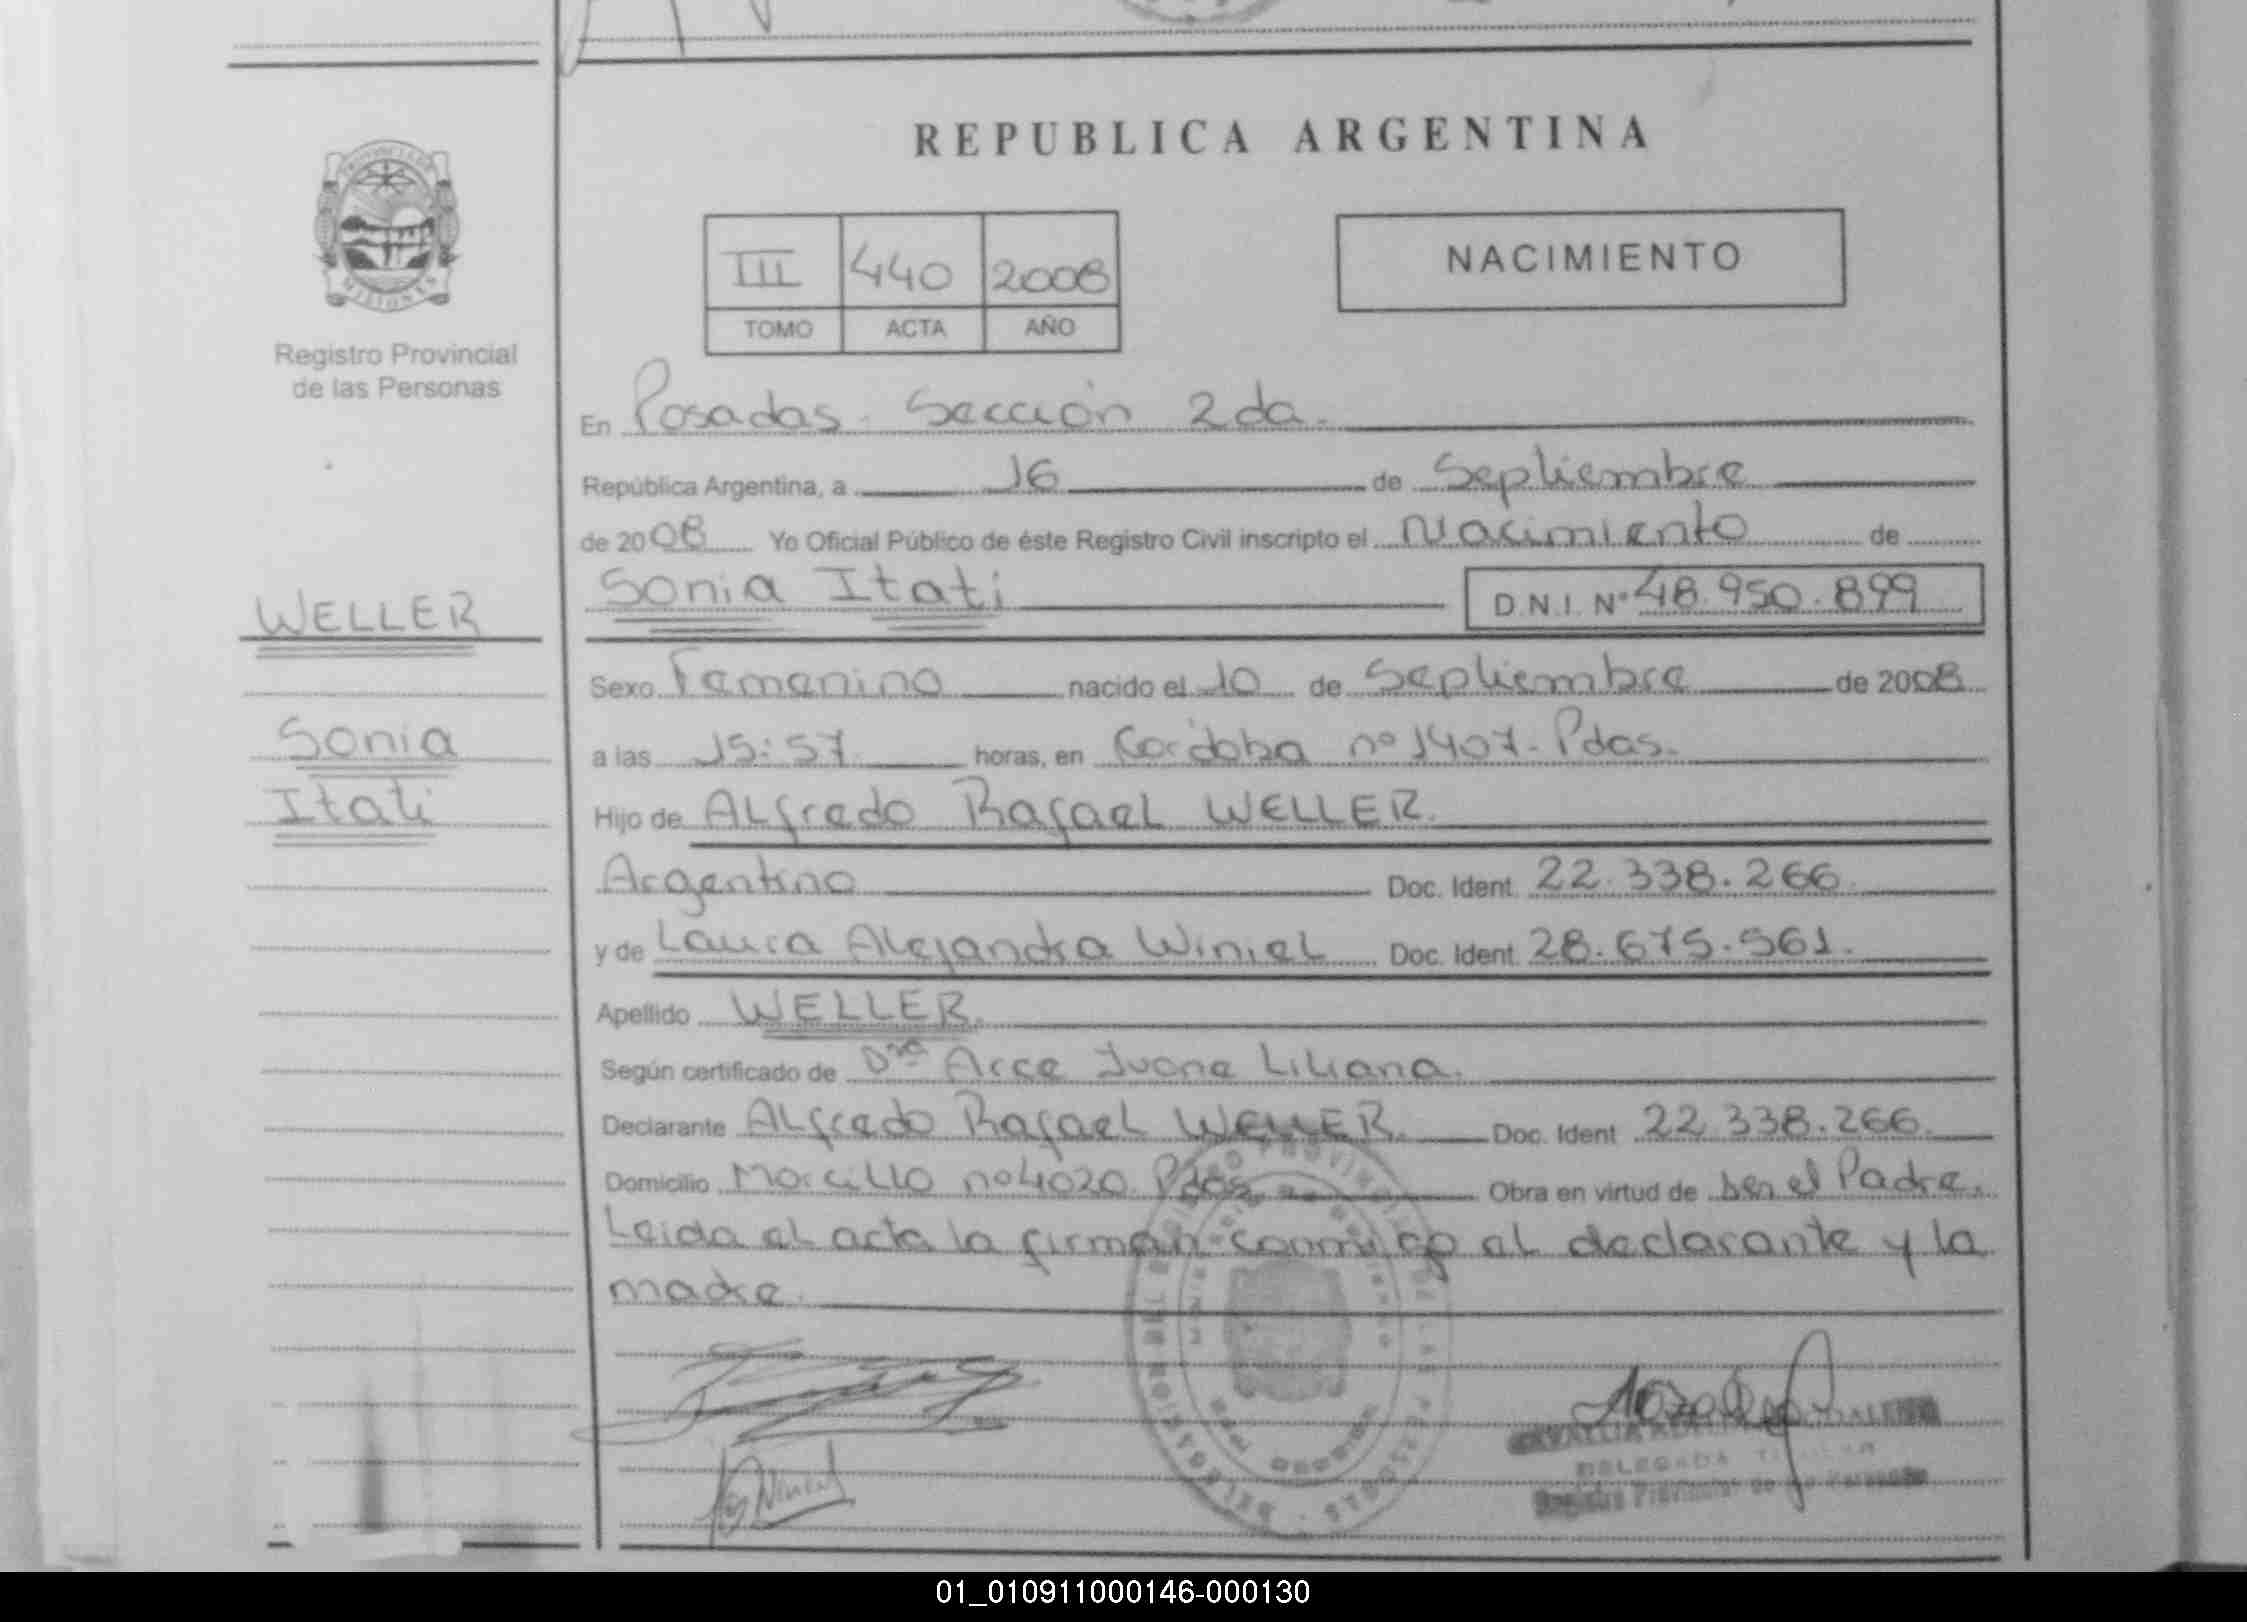 REPUBLICA ARGENTINA
PROVINCIA DE MISIONES
Registro Provincial
de las Personas
III 440 2008
TOMO ACTA AÑO
NACIMIENTO
En Posadas. Sección 2da.
República Argentina, a 16 de Septiembre
de 2008 Yo Oficial Público de éste Registro Civil inscripto el Nacimiento de
Sonia Itati D.N.I. Nº 48.950.899
WELLER
Sonia
Itati
Sexo Femenino nacido el 10 de Septiembre de 2008
a las 15:57 horas, en Cordoba nº 1407. Pdas.
Hijo de Alfredo Rafael WELLER.
Argentino Doc. Ident. 22.338.266.
y de Laura Alejandra Winiel Doc. Ident. 28.675.561.
Apellido WELLER.
Según certificado de Dra Arce Ivone Liliana.
Declarante Alfredo Rafael WELLER. Doc. Ident 22.338.266.
Domicilio Morcillo nº 4020. Pdas. Obra en virtud de ser el Padre.
Leida el acta la firman conmigo el declarante y la
madre.
DELEGADA TITULAR
Registro Provincial de las Personas
01_010911000146-000130